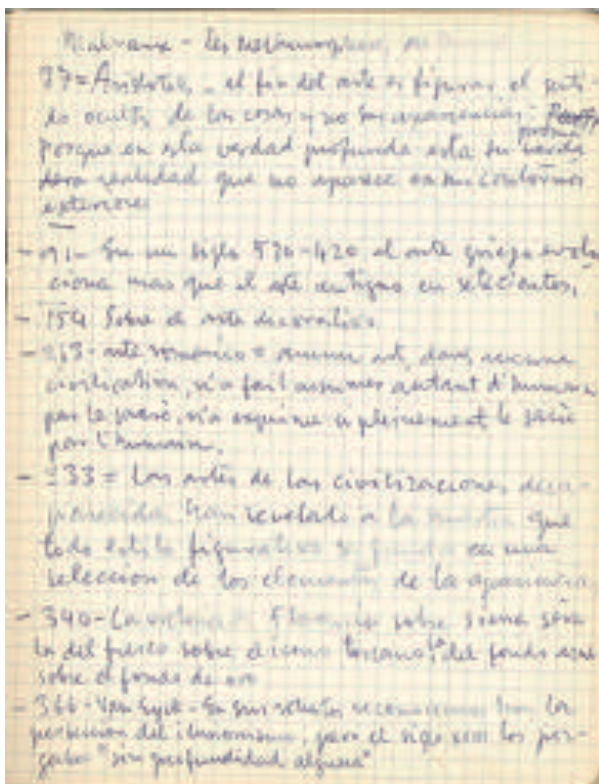 Malraux - Les métamorphoses
37 = Aristóteles - el fin del arte es figurar el senti-
do oculto de las cosas y no sus apariencias -
porque en esta verdad profunda esta su
realidad que no aparece en sus contornos
exteriores
- 91 - En un siglo 520-420 el arte griego evolu
ciona mas que el arte antiguo en setecientos.
- 154 Sobre el arte decorativo
- arte románico = aucun art, dans aucune
civilisation, n'a fait assumer autant d'humain
par le sacré, n'a exprimé si pleinement le sacré
par l'humain.
- 333 = Las artes de las civilizaciones desa-
parecidas han revelado a la nuestra que
todo estilo figurativo se funda en una
seleccion de los elementos de la apariencia
- 340 - La victoria Florencia sobre Siena será
la del fresco sobre el icono toscano, la del fondo azul
sobre el fondo de oro
- 366 - Van Eyck - En sus retratos reconocemos hoy la
perfeccion del ilusionismo, pero el siglo XVII los juz-
gaba "sin profundidad alguna"